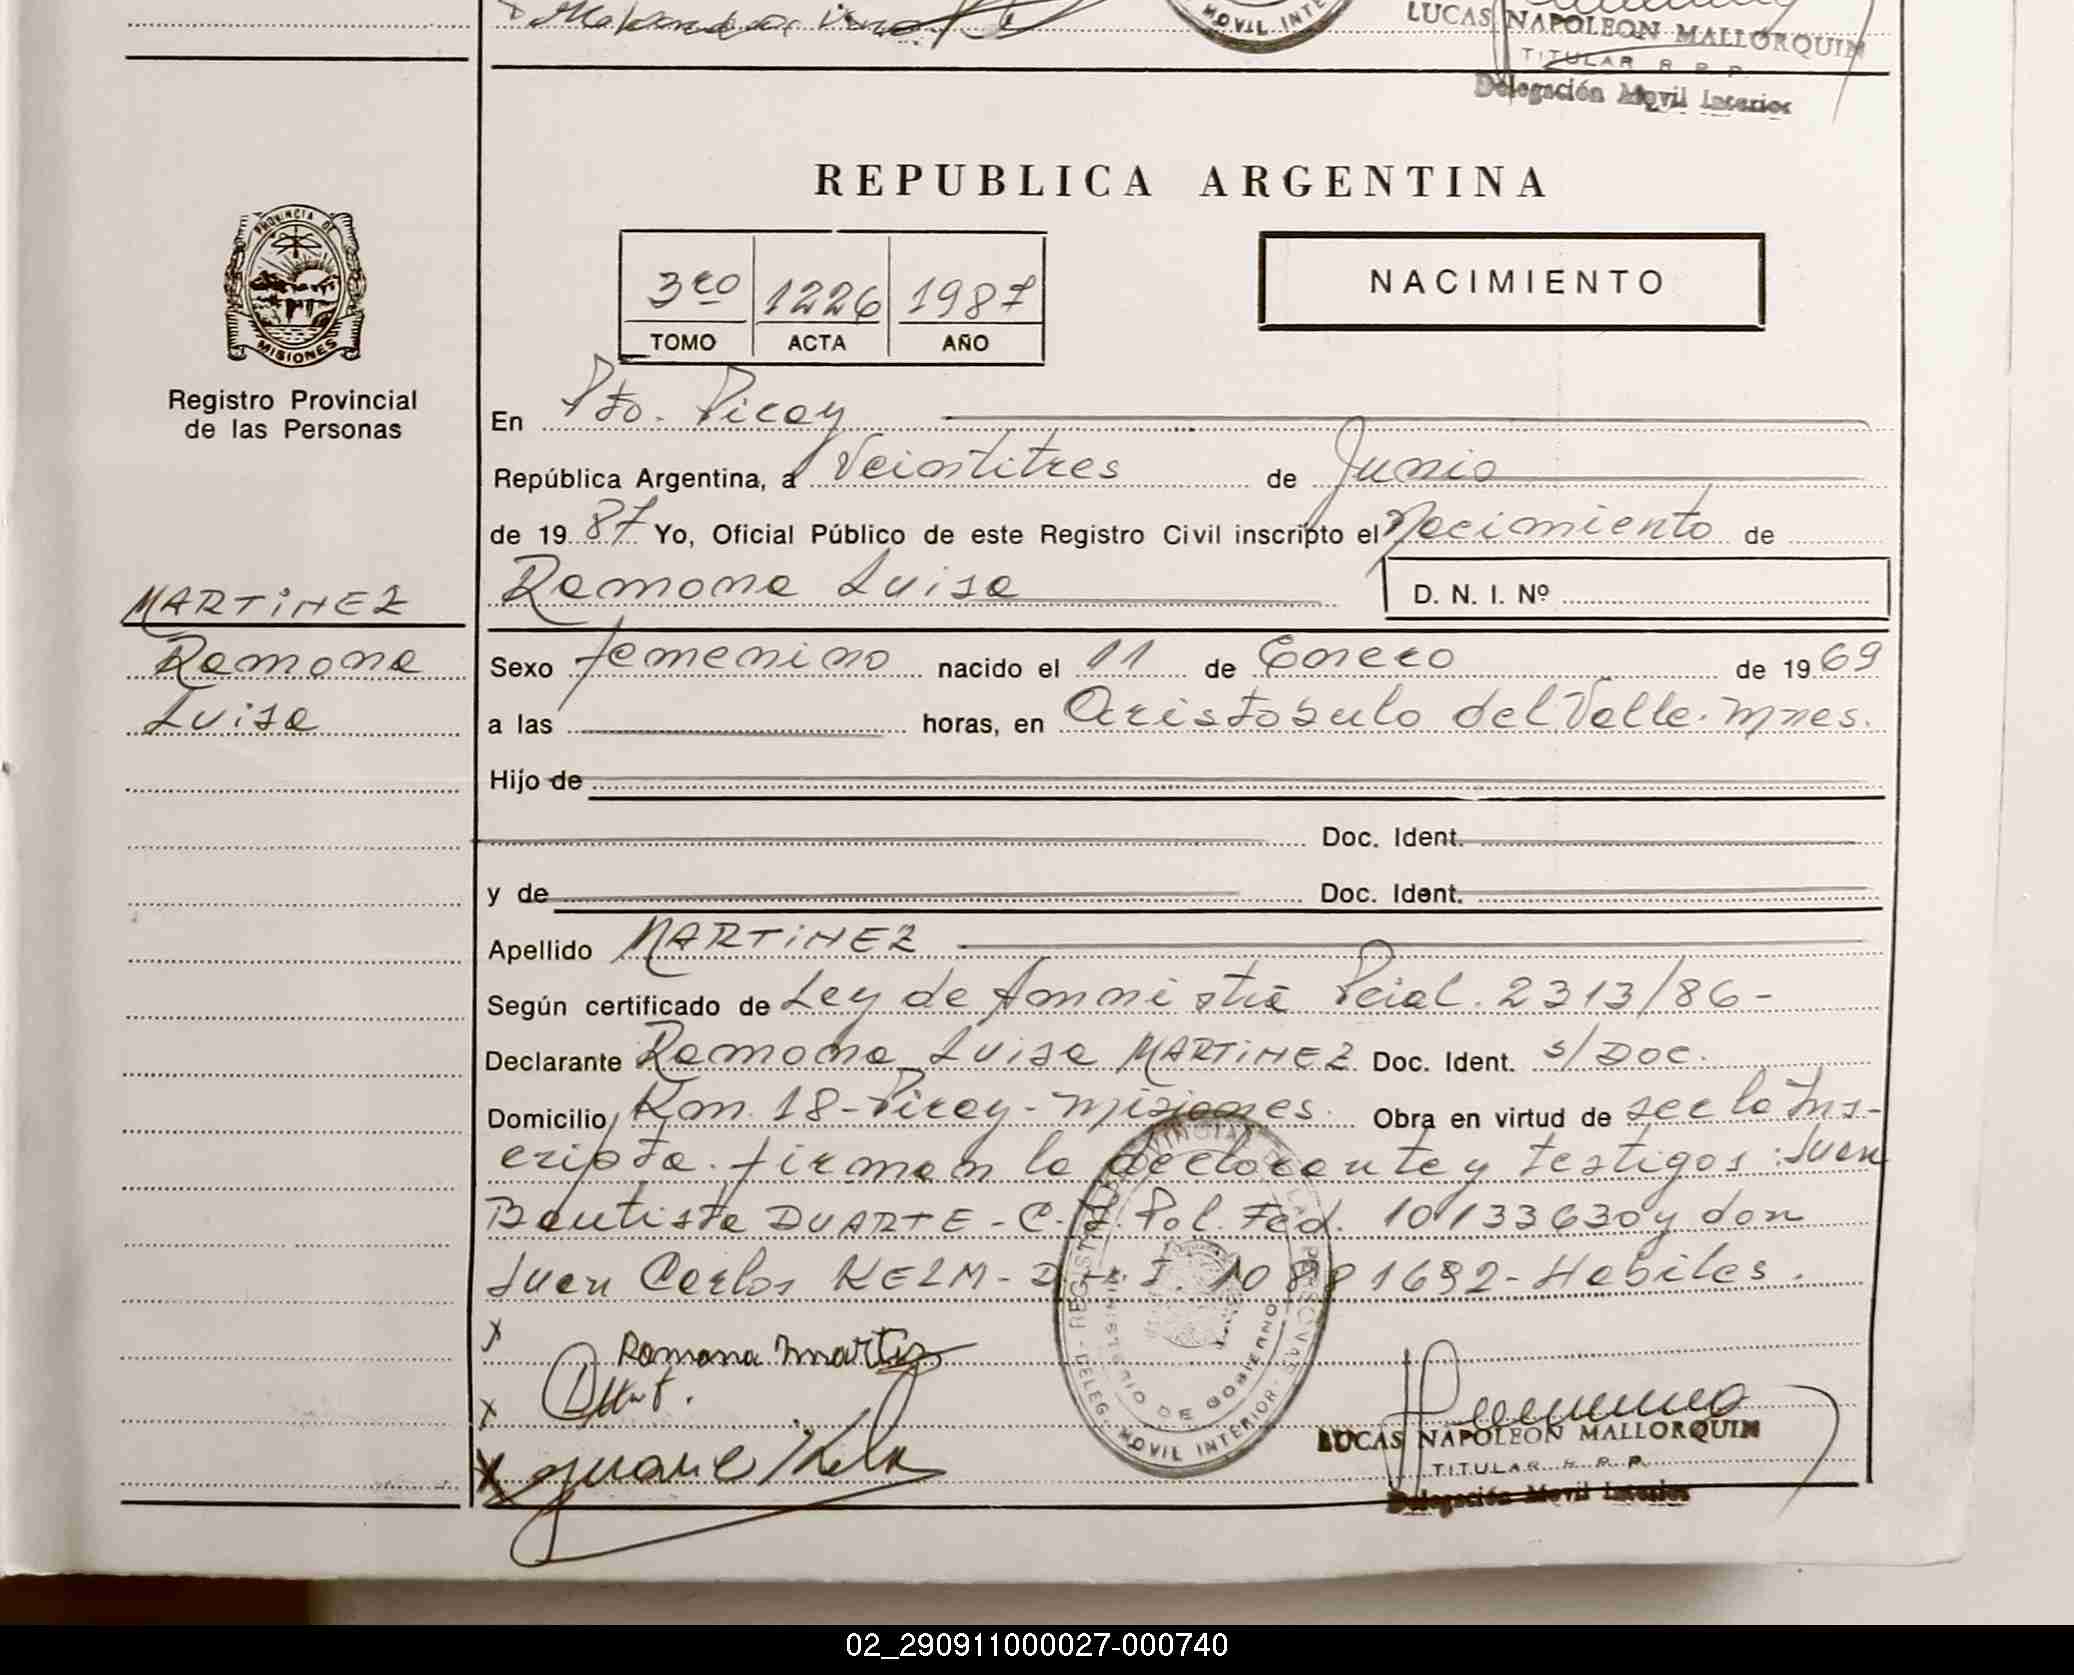 LUCAS NAPOLEON MALLORQUIN
TITULAR R. P. P.
Delegación Movil Interior
REPUBLICA ARGENTINA
PROVINCIA DE
MISIONES
Registro Provincial
de las Personas
3ro 1226 1987
TOMO ACTA AÑO
NACIMIENTO
En Pto. Piray
República Argentina, a Veintitres de Junio
de 1987 Yo, Oficial Público de este Registro Civil inscripto el Nacimiento de
Ramona Luisa D. N. I. Nº
MARTINEZ
Ramona
Luisa
Sexo femenino nacido el 11 de Enero de 1969
a las horas, en Aristobulo del Valle. Mnes.
Hijo de
Doc. Ident.
y de Doc. Ident.
Apellido MARTINEZ
Según certificado de Ley de Amnistia Pcial. 2313/86-
Declarante Ramona Luisa MARTINEZ Doc. Ident. s/Doc.
Domicilio Km. 18-Piray-Misiones. Obra en virtud de ser la Ins-
cripta. firman la declarante y testigos: Juan
Bautista DUARTE - C.I. Pol. Fed. 10133630 y don
Juan Carlos KELM- D.N.I. 1632-Habiles.
x Ramona Martiz
x
x
REGISTRO PROVINCIAL DE LAS PERSONAS
MINISTERIO DE GOBIERNO
DELEG. MOVIL INTERIOR
LUCAS NAPOLEON MALLORQUIN
TITULAR R. P. P.
Delegación Movil Interior
02_290911000027-000740